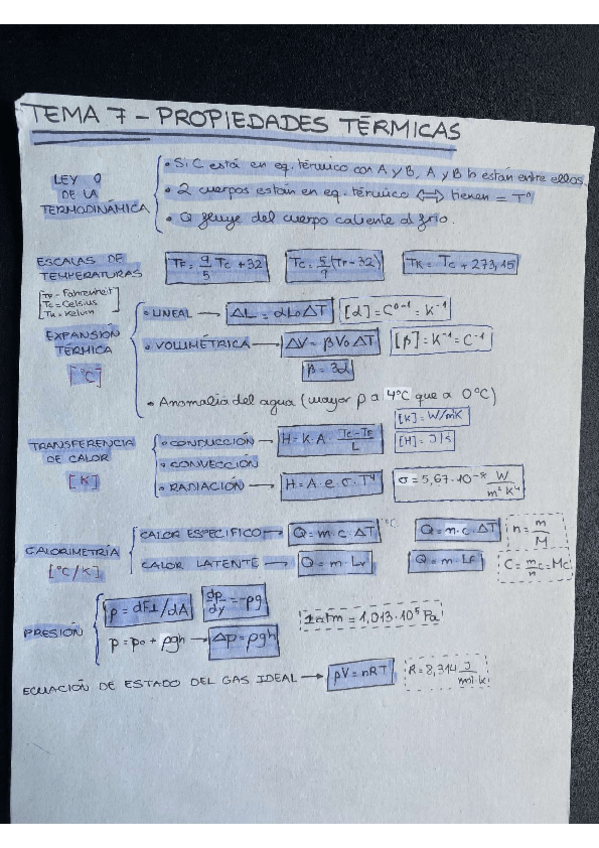 TEMA 7 - PROPIEDADES TÉRMICAS
LEY 0 DE LA TERMODINÁMICA
• Si C está en eq. térmico con A y B, A y B lo están entre ellos.
• 2 cuerpos están en eq. térmico ⟺ tienen = Tº
• Q fluye del cuerpo caliente al frío.
ESCALAS DE TEMPERATURAS
TF = 9/5 TC + 32
TC = 5/9 (TF - 32)
TK = TC + 273,15
TF = Fahrenheit
TC = Celsius
TK = Kelvin
EXPANSIÓN TÉRMICA
[°C]
• LINEAL → ΔL = αL0ΔT [α] = Cº⁻¹ = K⁻¹
• VOLUMÉTRICA → ΔV = βV0ΔT [β] = K⁻¹ = C⁻¹
β = 3α
• Anomalía del agua (mayor ρ a 4ºC que a 0ºC)
TRANSFERENCIA DE CALOR
[K]
[K] = W/mK
[H] = J/s
• CONDUCCIÓN → H = K·A·(TC - TF)/L
• CONVECCIÓN
• RADIACIÓN → H = A·e·σ·T⁴ σ = 5,67·10⁻⁸ W/m²K⁴
CALORIMETRÍA
[°C/K]
CALOR ESPECÍFICO → Q = m·c·ΔT ºC Q = n·C·ΔT n = m/M
CALOR LATENTE → Q = m·Lv Q = m·LF C = m/n c = Mc
PRESIÓN
p = dF⊥/dA dp/dy = -ρg
p = p0 + ρgh → Δp = ρgh
1 atm = 1,013·10⁵ Pa
ECUACIÓN DE ESTADO DEL GAS IDEAL → pV = nRT R = 8,314 J/mol·K